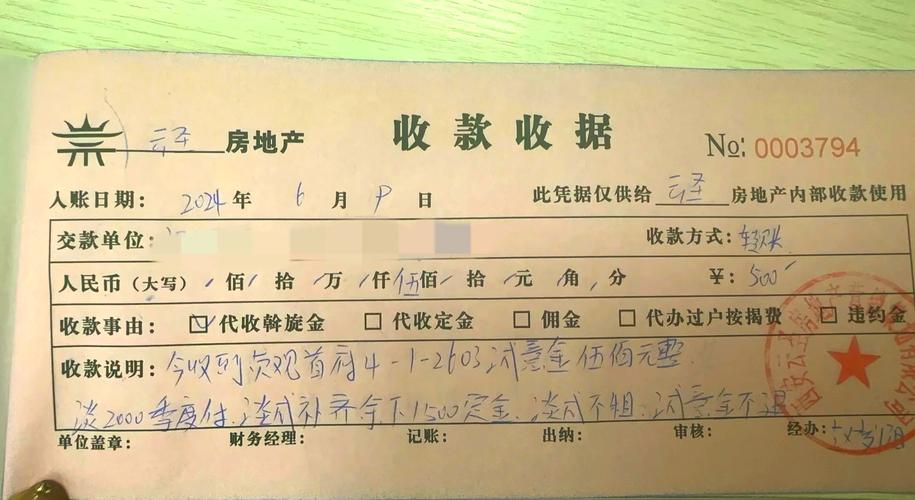 云圣 房地产 收款收据 No: 0003794
入账日期: 2024 年 6 月 9 日 此凭据仅供给 云圣 房地产内部收款使用
交款单位: 收款方式: 转账
人民币(大写) 佰 拾 万 仟 伍佰 拾 元 角 分 ¥: 500
收款事由: 代收斡旋金 代收定金 佣金 代办过户按揭费 违约金
收款说明: 今收到 观首府4-1-2603诚意金伍佰元整.
谈2000季度付, 谈成补齐余下1500定金. 谈成不租, 诚意金不退
单位盖章: 财务经理: 记账: 出纳: 审核: 经办: